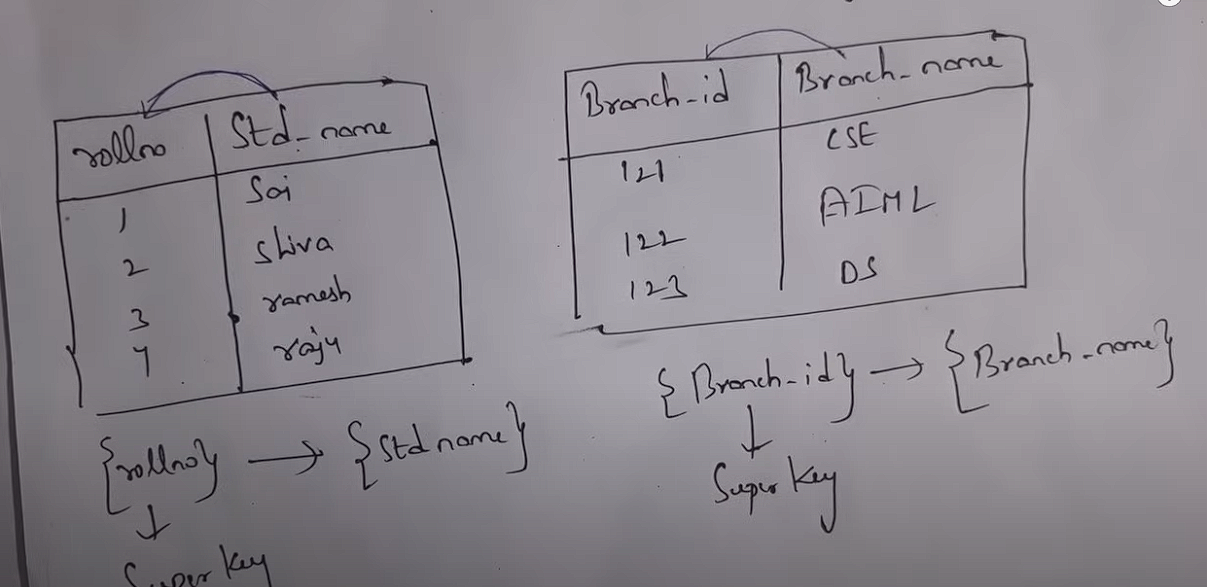 rollno Std_name
1 Sai
2 Shiva
3 ramesh
4 raju
{rollno} → {Std name}
↓
Super key
Branch-id Branch-name
121 CSE
122 AIML
123 DS
{Branch-id} → {Branch-name}
↓
Super key